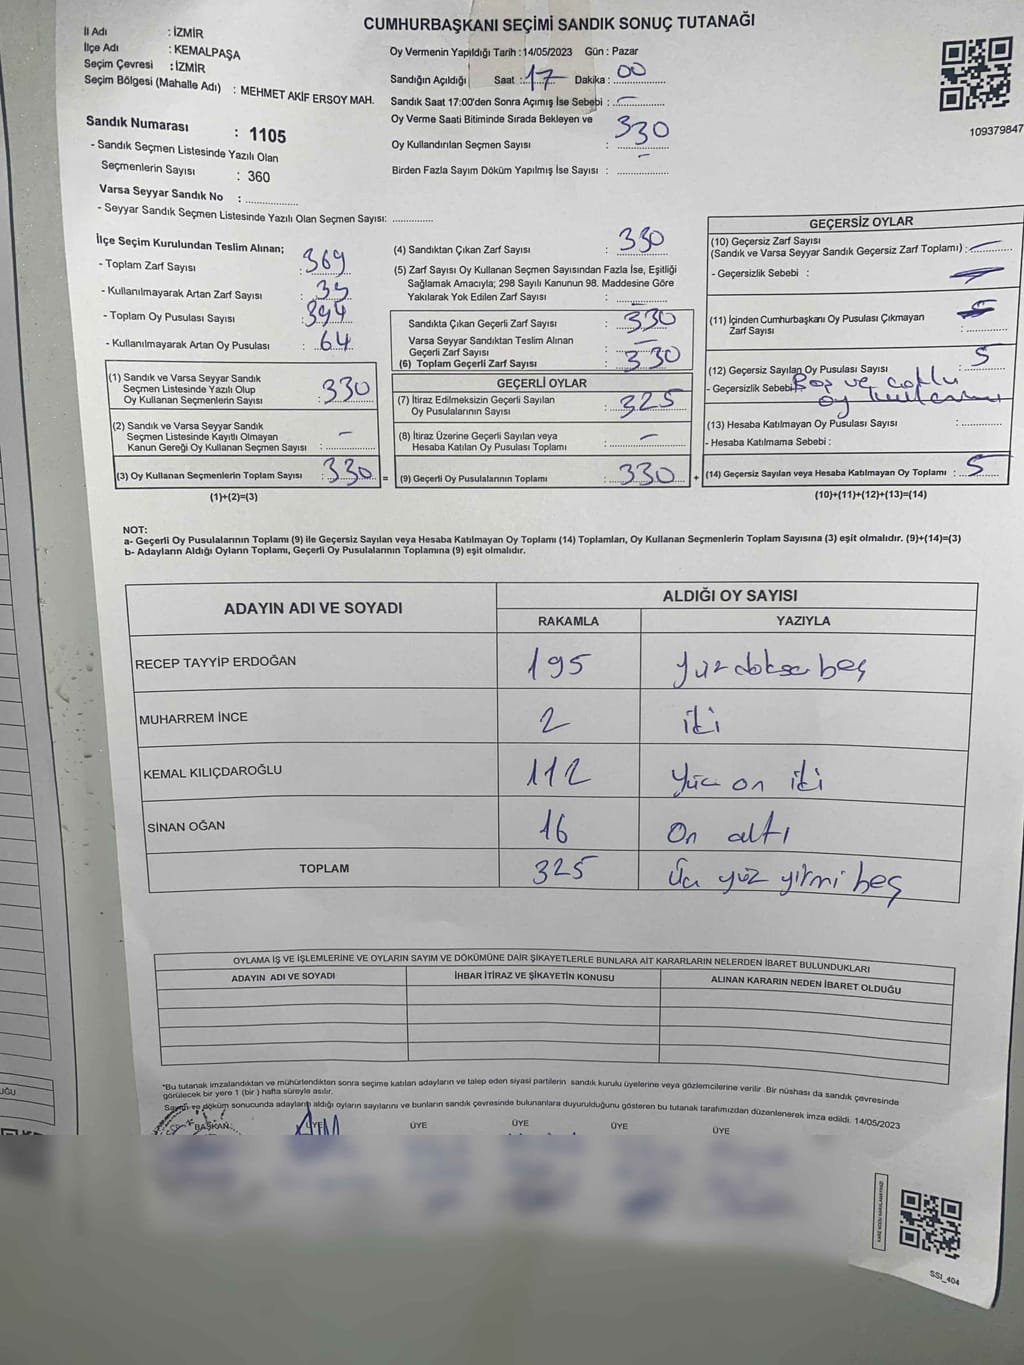 CUMHURBAŞKANI SEÇİMİ SANDIK SONUÇ TUTANAĞI
İl Adı : İZMİR
İlçe Adı : KEMALPAŞA
Seçim Çevresi : İZMİR
Seçim Bölgesi (Mahalle Adı) : MEHMET AKİF ERSOY MAH.
Sandık Numarası : 1105
- Sandık Seçmen Listesinde Yazılı Olan
Seçmenlerin Sayısı : 360
Varsa Seyyar Sandık No :
- Seyyar Sandık Seçmen Listesinde Yazılı Olan Seçmen Sayısı:
Oy Vermenin Yapıldığı Tarih : 14/05/2023 Gün : Pazar
Sandığın Açıldığı Saat : 17 Dakika : 00
Sandık Saat 17:00'den Sonra Açımış İse Sebebi : -
Oy Verme Saati Bitiminde Sırada Bekleyen ve
Oy Kullandırılan Seçmen Sayısı : 330
Birden Fazla Sayım Döküm Yapılmış İse Sayısı : -
109379847
İlçe Seçim Kurulundan Teslim Alınan;
- Toplam Zarf Sayısı : 369
- Kullanılmayarak Artan Zarf Sayısı : 39
- Toplam Oy Pusulası Sayısı : 394
- Kullanılmayarak Artan Oy Pusulası : 64
(1) Sandık ve Varsa Seyyar Sandık
Seçmen Listesinde Yazılı Olup
Oy Kullanan Seçmenlerin Sayısı : 330
(2) Sandık ve Varsa Seyyar Sandık
Seçmen Listesinde Kayıtlı Olmayan
Kanun Gereği Oy Kullanan Seçmen Sayısı : -
(3) Oy Kullanan Seçmenlerin Toplam Sayısı : 330 =
(1)+(2)=(3)
(4) Sandıktan Çıkan Zarf Sayısı : 330
(5) Zarf Sayısı Oy Kullanan Seçmen Sayısından Fazla İse, Eşitliği
Sağlamak Amacıyla; 298 Sayılı Kanunun 98. Maddesine Göre
Yakılarak Yok Edilen Zarf Sayısı : -
Sandıkta Çıkan Geçerli Zarf Sayısı : 330
Varsa Seyyar Sandıktan Teslim Alınan
Geçerli Zarf Sayısı : -
(6) Toplam Geçerli Zarf Sayısı : 330
GEÇERLİ OYLAR
(7) İtiraz Edilmeksizin Geçerli Sayılan
Oy Pusulalarının Sayısı : 325
(8) İtiraz Üzerine Geçerli Sayılan veya
Hesaba Katılan Oy Pusulası Toplamı : -
(9) Geçerli Oy Pusulalarının Toplamı : 330 +
GEÇERSİZ OYLAR
(10) Geçersiz Zarf Sayısı
(Sandık ve Varsa Seyyar Sandık Geçersiz Zarf Toplamı) : -
- Geçersizlik Sebebi :
(11) İçinden Cumhurbaşkanı Oy Pusulası Çıkmayan
Zarf Sayısı :
(12) Geçersiz Sayılan Oy Pusulası Sayısı : 5
- Geçersizlik Sebebi: Boş ve çoklu
oy kullanımı
(13) Hesaba Katılmayan Oy Pusulası Sayısı :
- Hesaba Katılmama Sebebi :
(14) Geçersiz Sayılan veya Hesaba Katılmayan Oy Toplamı : 5
(10)+(11)+(12)+(13)=(14)
NOT:
a- Geçerli Oy Pusulalarının Toplamı (9) ile Geçersiz Sayılan veya Hesaba Katılmayan Oy Toplamı (14) Toplamları, Oy Kullanan Seçmenlerin Toplam Sayısına (3) eşit olmalıdır. (9)+(14)=(3)
b- Adayların Aldığı Oyların Toplamı, Geçerli Oy Pusulalarının Toplamına (9) eşit olmalıdır.
ADAYIN ADI VE SOYADI ALDIĞI OY SAYISI
RAKAMLA YAZIYLA
RECEP TAYYİP ERDOĞAN 195 yüzdoksabeş
MUHARREM İNCE 2 iki
KEMAL KILIÇDAROĞLU 112 Yüz on iki
SİNAN OĞAN 16 On altı
TOPLAM 325 Üç yüz yirmi beş
OYLAMA İŞ VE İŞLEMLERİNE VE OYLARIN SAYIM VE DÖKÜMÜNE DAİR ŞİKAYETLERLE BUNLARA AİT KARARLARIN NELERDEN İBARET BULUNDUKLARI
ADAYIN ADI VE SOYADI İHBAR İTİRAZ VE ŞİKAYETİN KONUSU ALINAN KARARIN NEDEN İBARET OLDUĞU
*Bu tutanak imzalandıktan ve mühürlendikten sonra seçime katılan adayların ve talep eden siyasi partilerin sandık kurulu üyelerine veya gözlemcilerine verilir .Bir nüshası da sandık çevresinde
görülecek bir yere 1 (bir ) hafta süreyle asılır.
Sayım ve döküm sonucunda adayların aldığı oyların sayılarını ve bunların sandık çevresinde bulunanlara duyurulduğunu gösteren bu tutanak tarafımızdan düzenlenerek imza edildi. 14/05/2023
BAŞKAN ÜYE ÜYE ÜYE ÜYE ÜYE
SSI_404